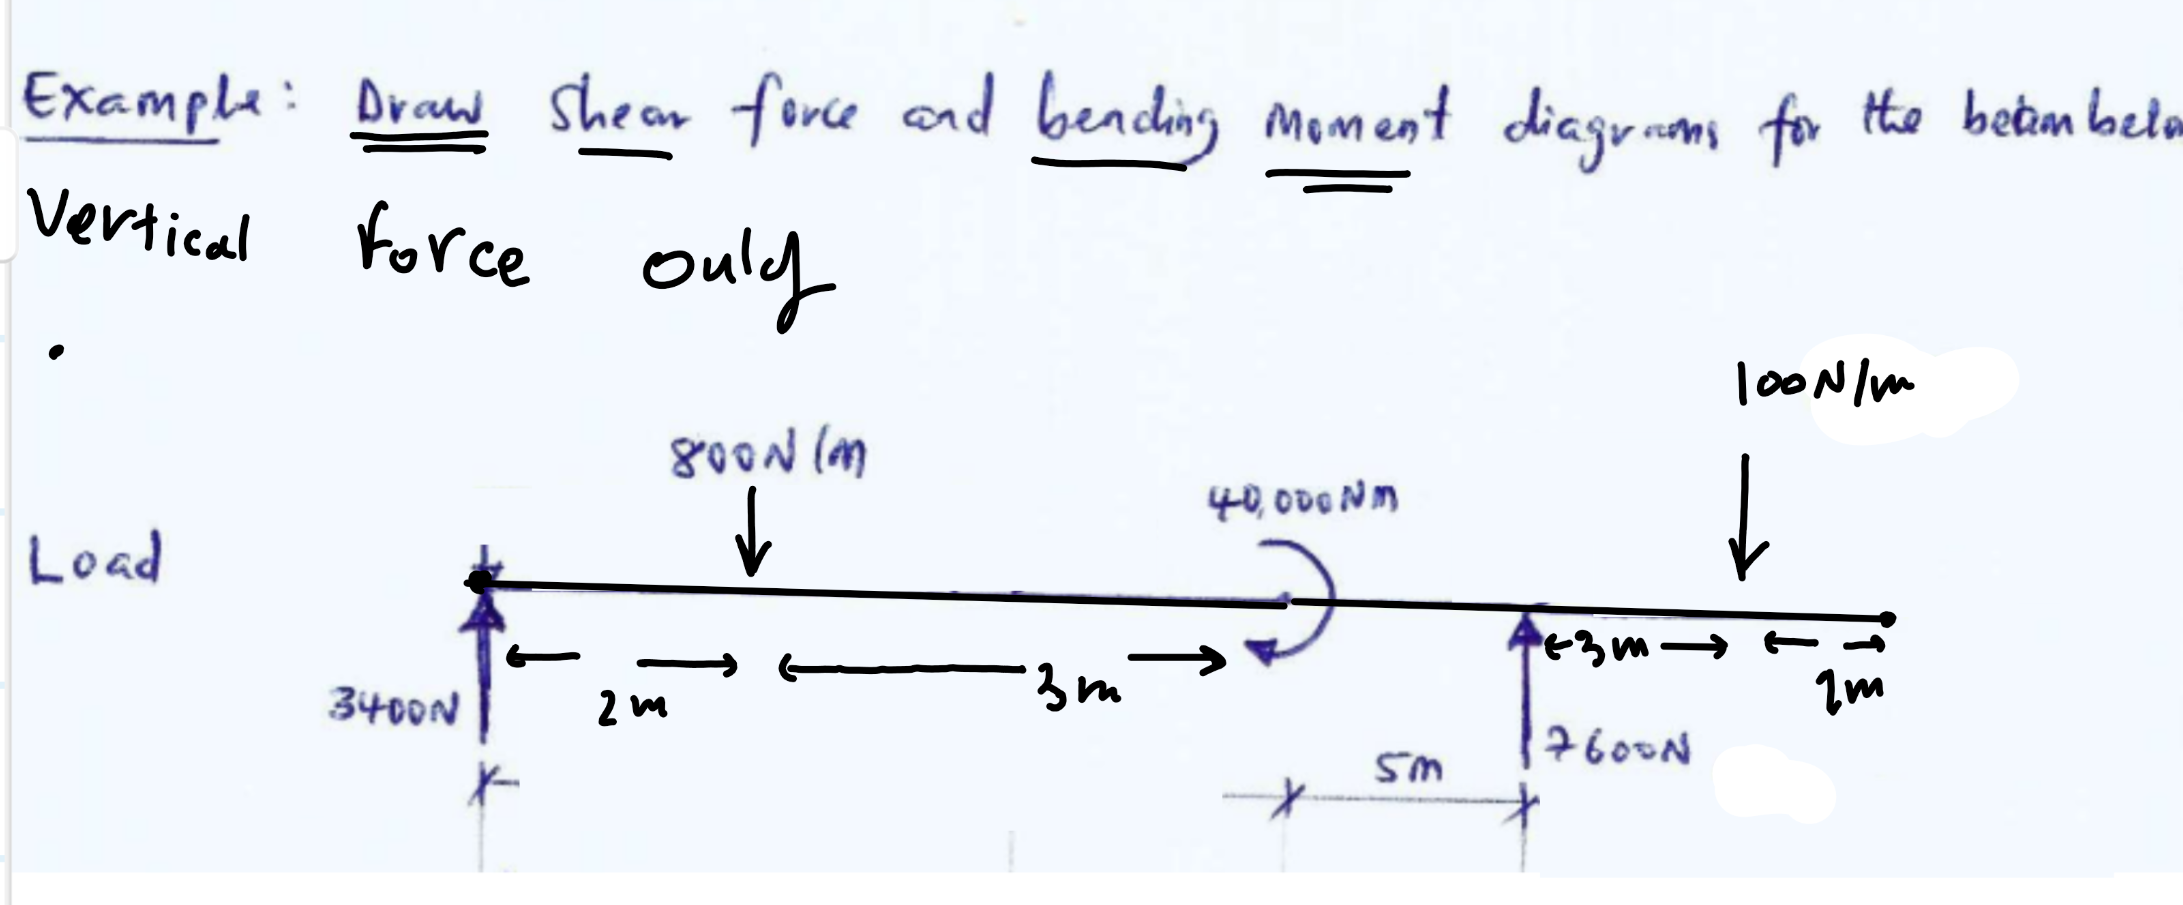 Example: Draw shear force and bending moment diagrams for the beam belo
Vertical Force only
100N/m
800N/m
40,000Nm
Load
3m
2m
3m
2m
3400N
7600N
5m